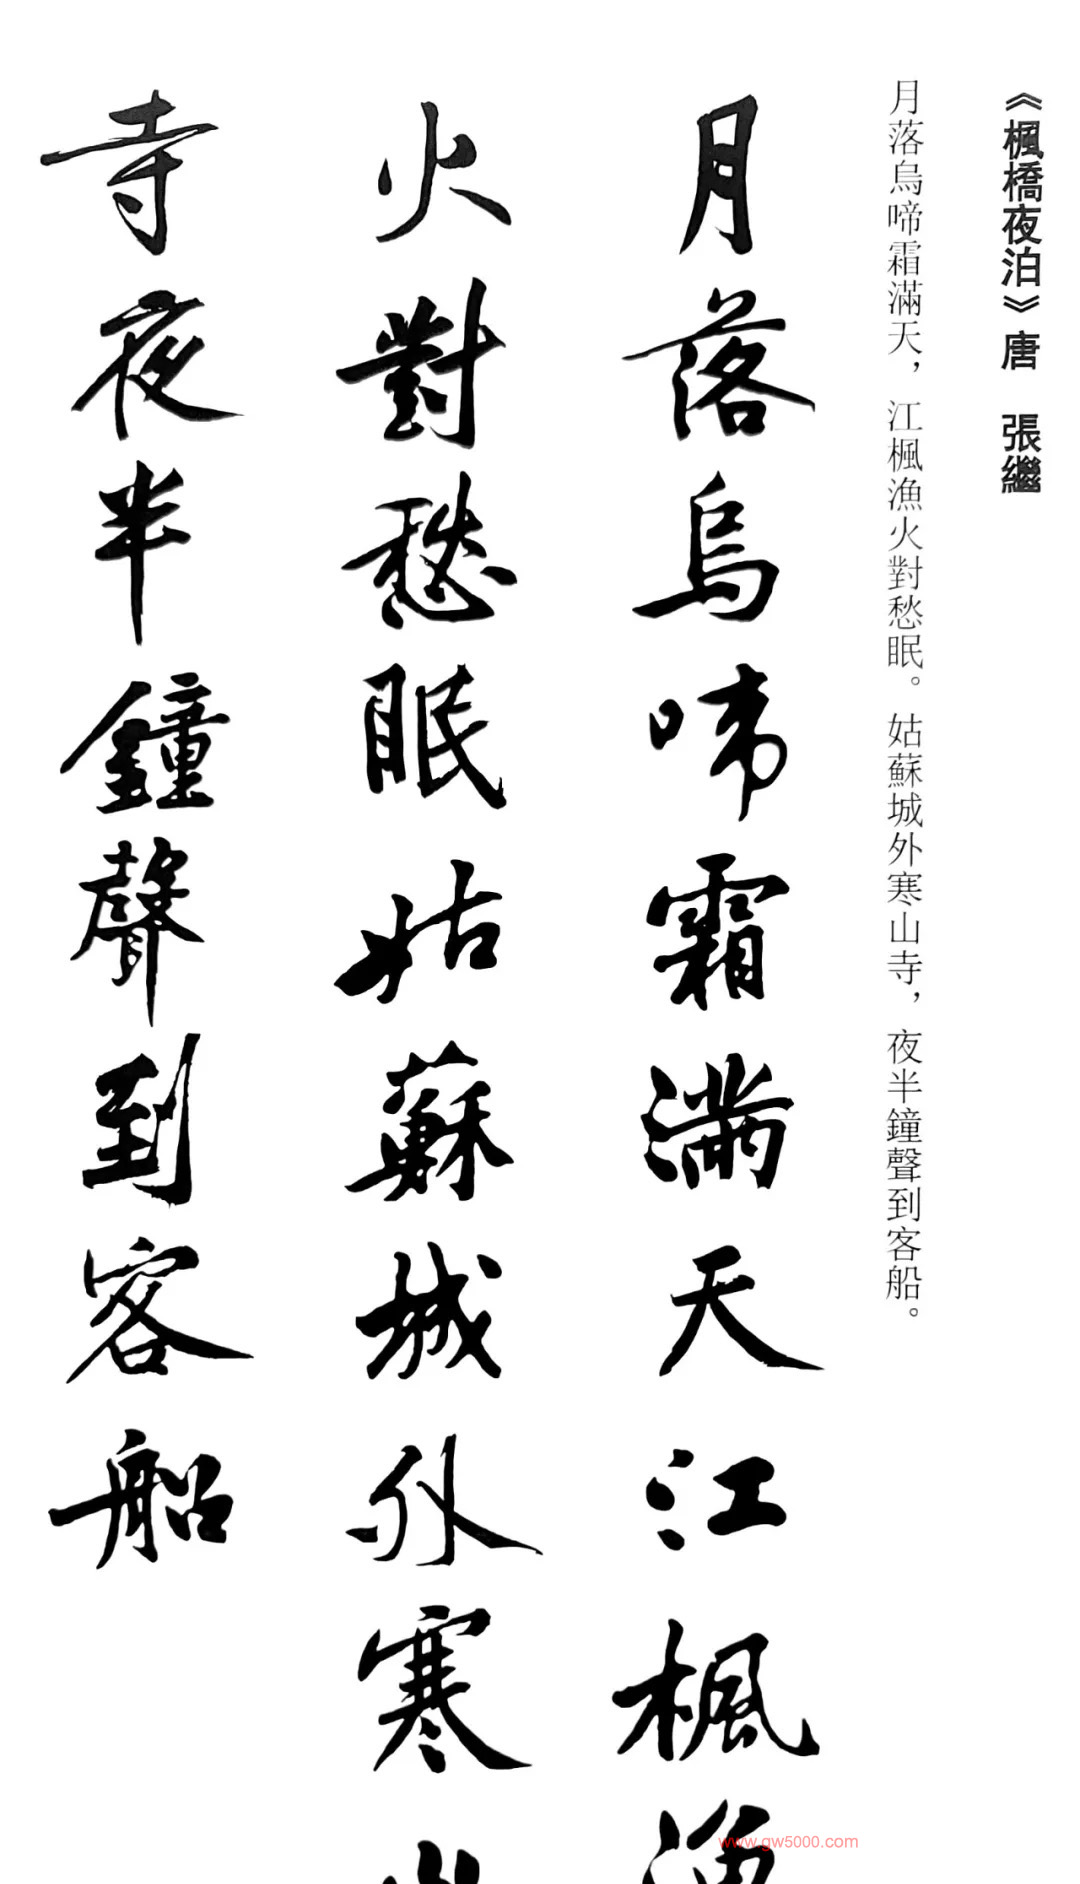 《楓橋夜泊》唐　張繼
月落烏啼霜滿天，江楓漁火對愁眠。姑蘇城外寒山寺，夜半鐘聲到客船。
月落烏啼霜滿天江楓漁
火對愁眠姑蘇城外寒山
寺夜半鐘聲到客船
www.gw5000.com